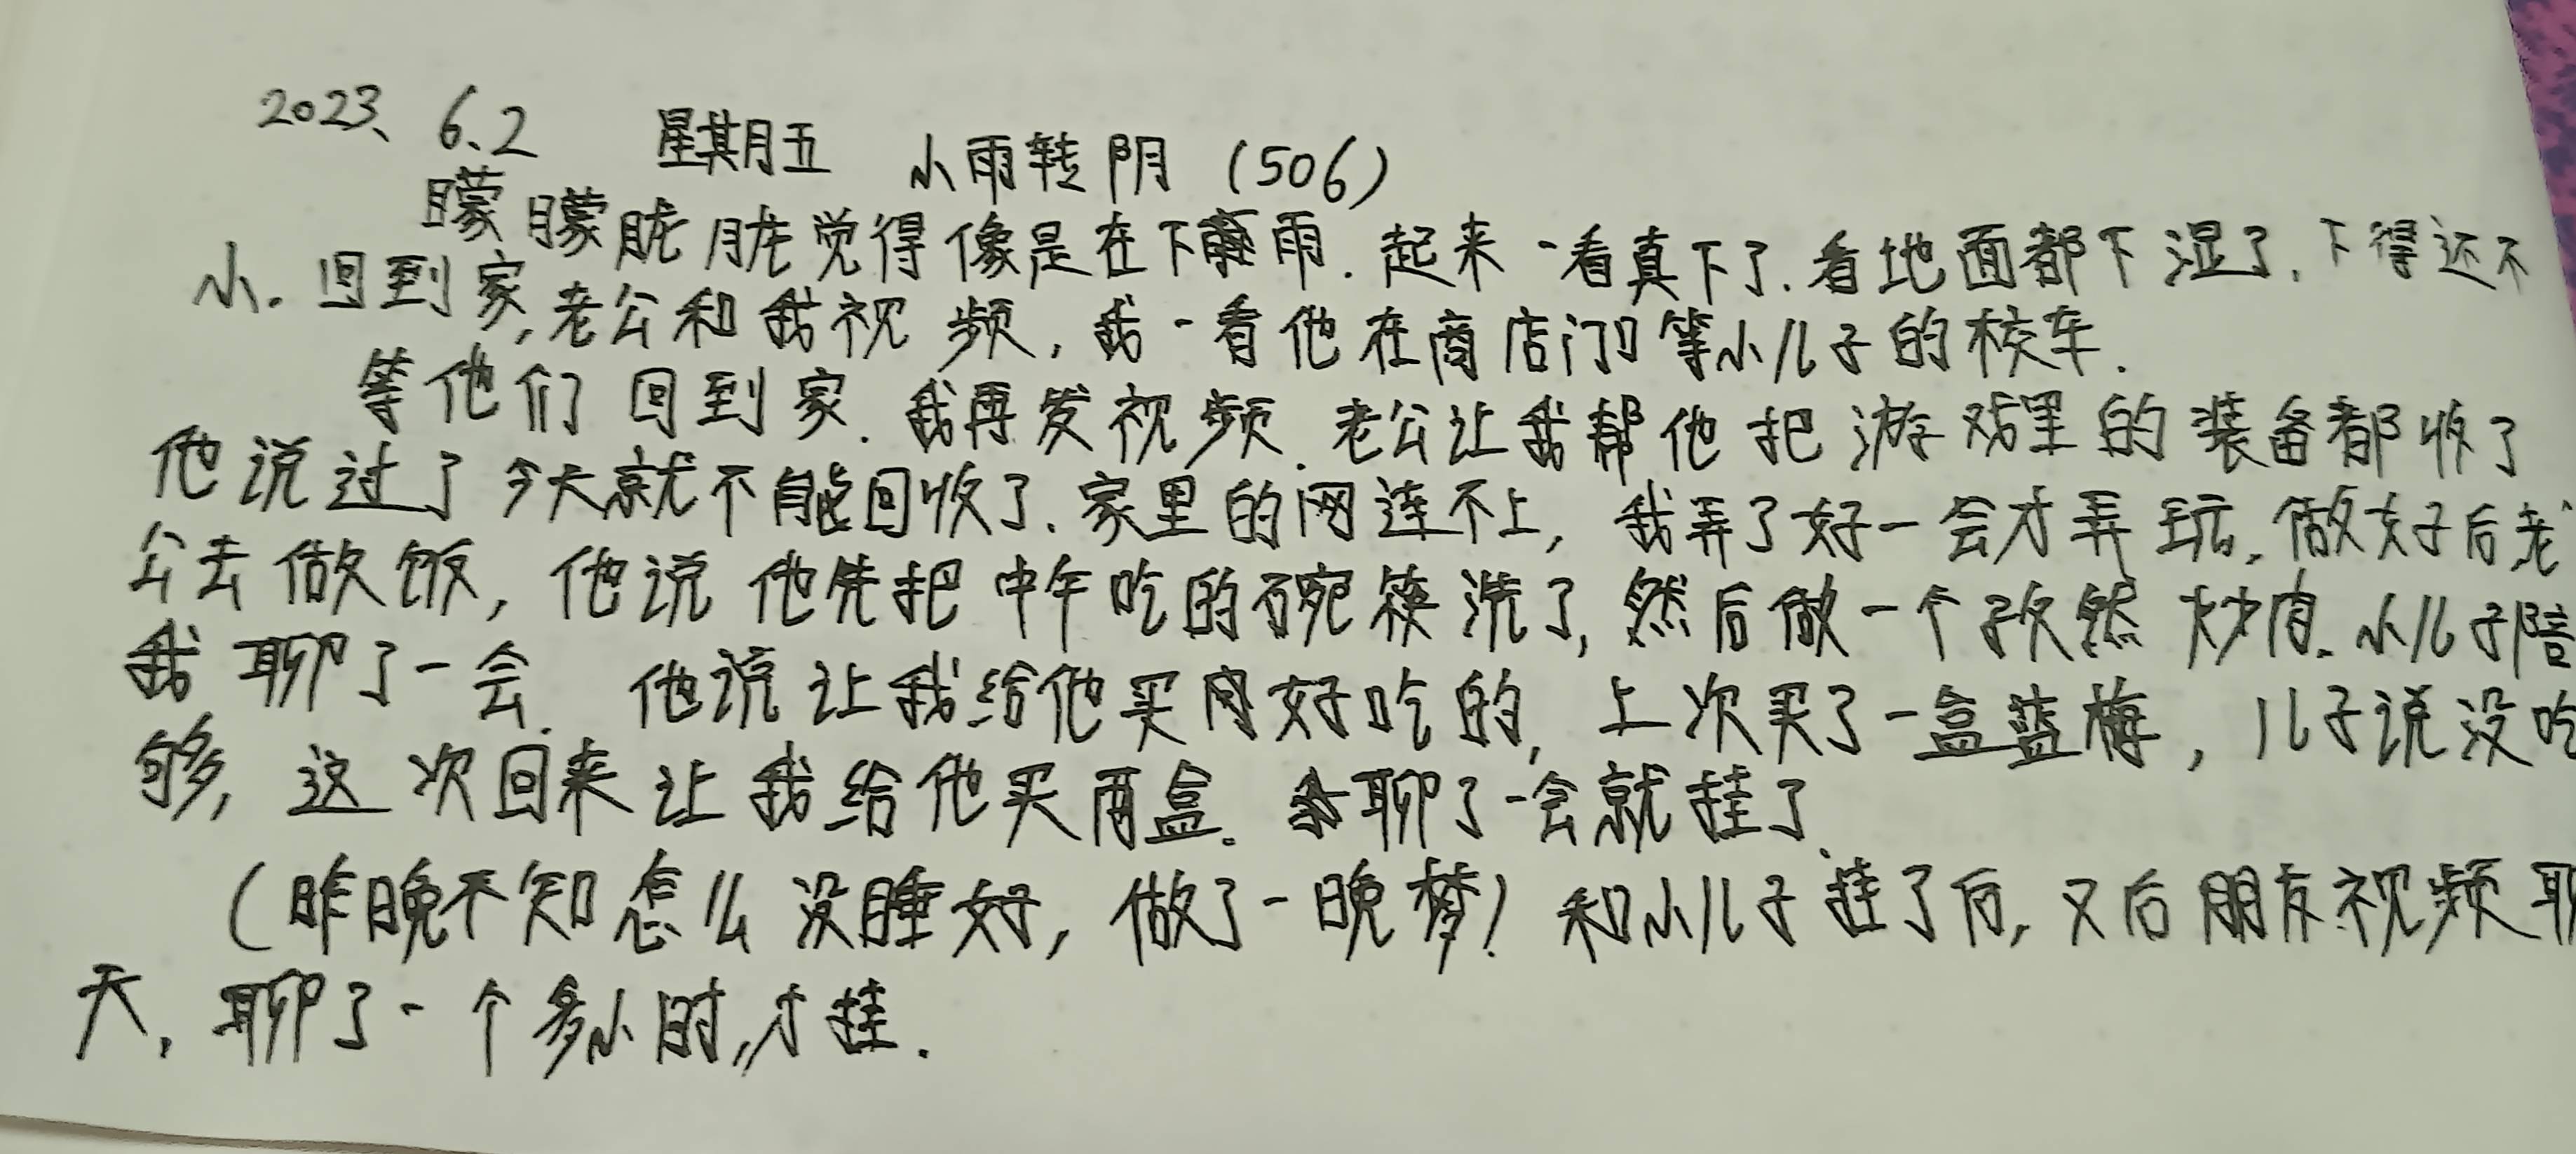 2023、6.2 星期五 小雨转阴 (506)
朦朦胧胧觉得像是在下雨. 起来一看真下了. 看地面都下湿了. 下得还不
小. 回到家, 老公和我视频, 我一看他在商店门口等小儿子的校车.
等他们回到家. 我再发视频. 老公让我帮他把游戏里的装备都收了
他说过了今天就不能回收了. 家里的网连不上, 我弄了好一会才弄玩. 做好后老
公去做饭, 他说他先把中午吃的碗筷洗了, 然后做一个孜然炒肉. 小儿子陪
我聊了一会. 他说让我给他买肉好吃的, 上次买了一盒蓝莓, 儿子说没吃
够, 这次回来让我给他买两盒. 聊了一会就挂了.
(昨晚不知怎么没睡好, 做了一晚梦) 和小儿子挂了后, 又后朋友视频聊
天, 聊了一个多小时, 才挂.